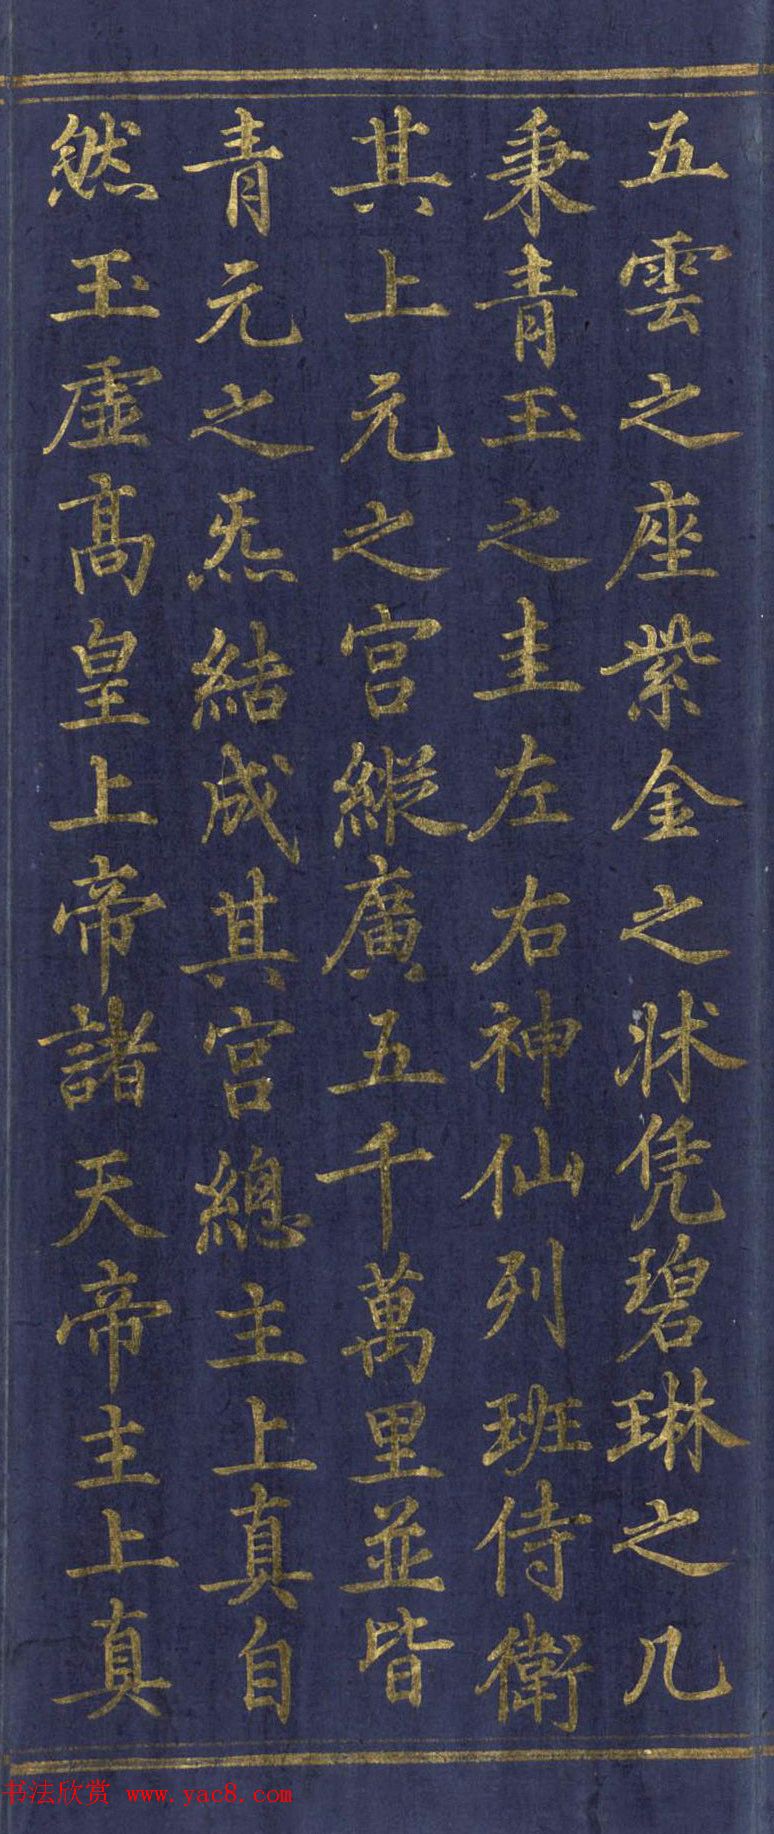 五雲之座紫金之牀凭碧琳之几
秉青玉之圭左右神仙列班侍衛
其上元之宫縱廣五千萬里並皆
青元之炁結成其宫總主上真自
然玉虛髙皇上帝諸天帝主上真
书法欣赏 www.yac8.com